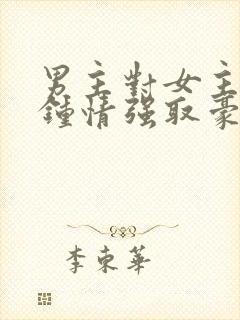 男主對女主
鍾情強取豪
李東華